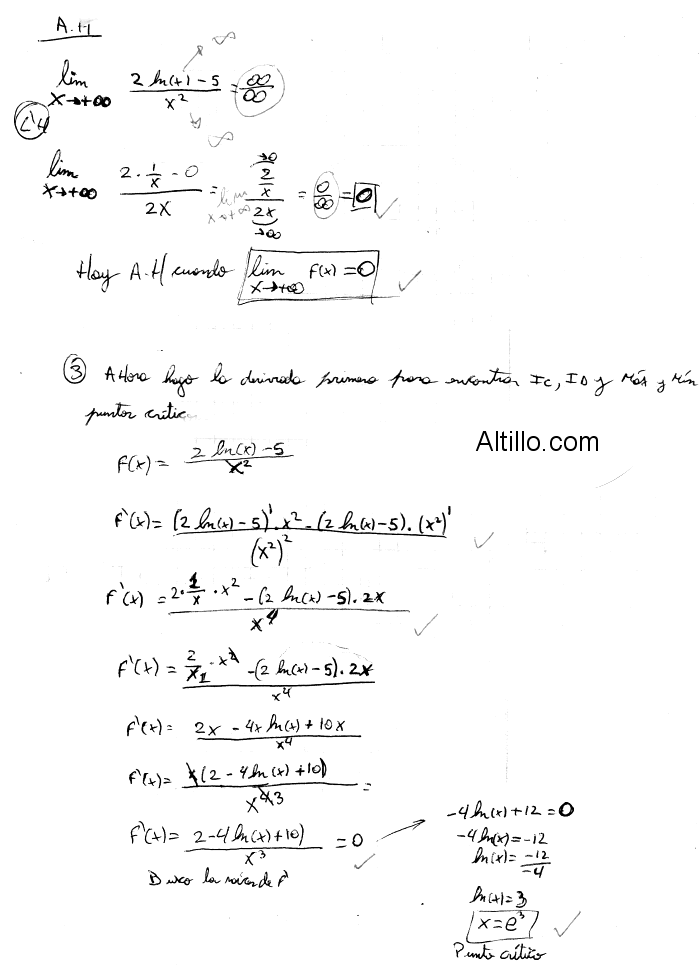 A.H
lim x→+∞ 2 ln(x) - 5 / x² = ∞/∞
→∞
→∞
L'H
lim x→+∞ 2 · 1/x - 0 / 2x = lim x→+∞ 2/x / 2x = 0/∞ = 0 ✓
→0
→∞
Hay A.H cuando lim x→+∞ F(x) = 0 ✓
③ AHora hago la derivada primera para encontrar Ic, ID y Máx y Mín
puntos crític
Altillo.com
F(x) = 2 ln(x) - 5 / x²
F'(x) = (2 ln(x) - 5)' · x² - (2 ln(x) - 5) · (x²)' / (x²)² ✓
F'(x) = 2 · 1/x · x² - (2 ln(x) - 5) · 2x / x⁴ ✓
F'(x) = 2/x1 · x² - (2 ln(x) - 5) · 2x / x⁴
F'(x) = 2x - 4x ln(x) + 10x / x⁴
F'(x) = x(2 - 4 ln(x) + 10) / x⁴ 3 =
F'(x) = 2 - 4 ln(x) + 10) / x³ = 0 → ✓
Busco las raíces de F'
-4 ln(x) + 12 = 0
-4 ln(x) = -12
ln(x) = -12 / -4
ln(x) = 3
x = e³ ✓
Punto crítico